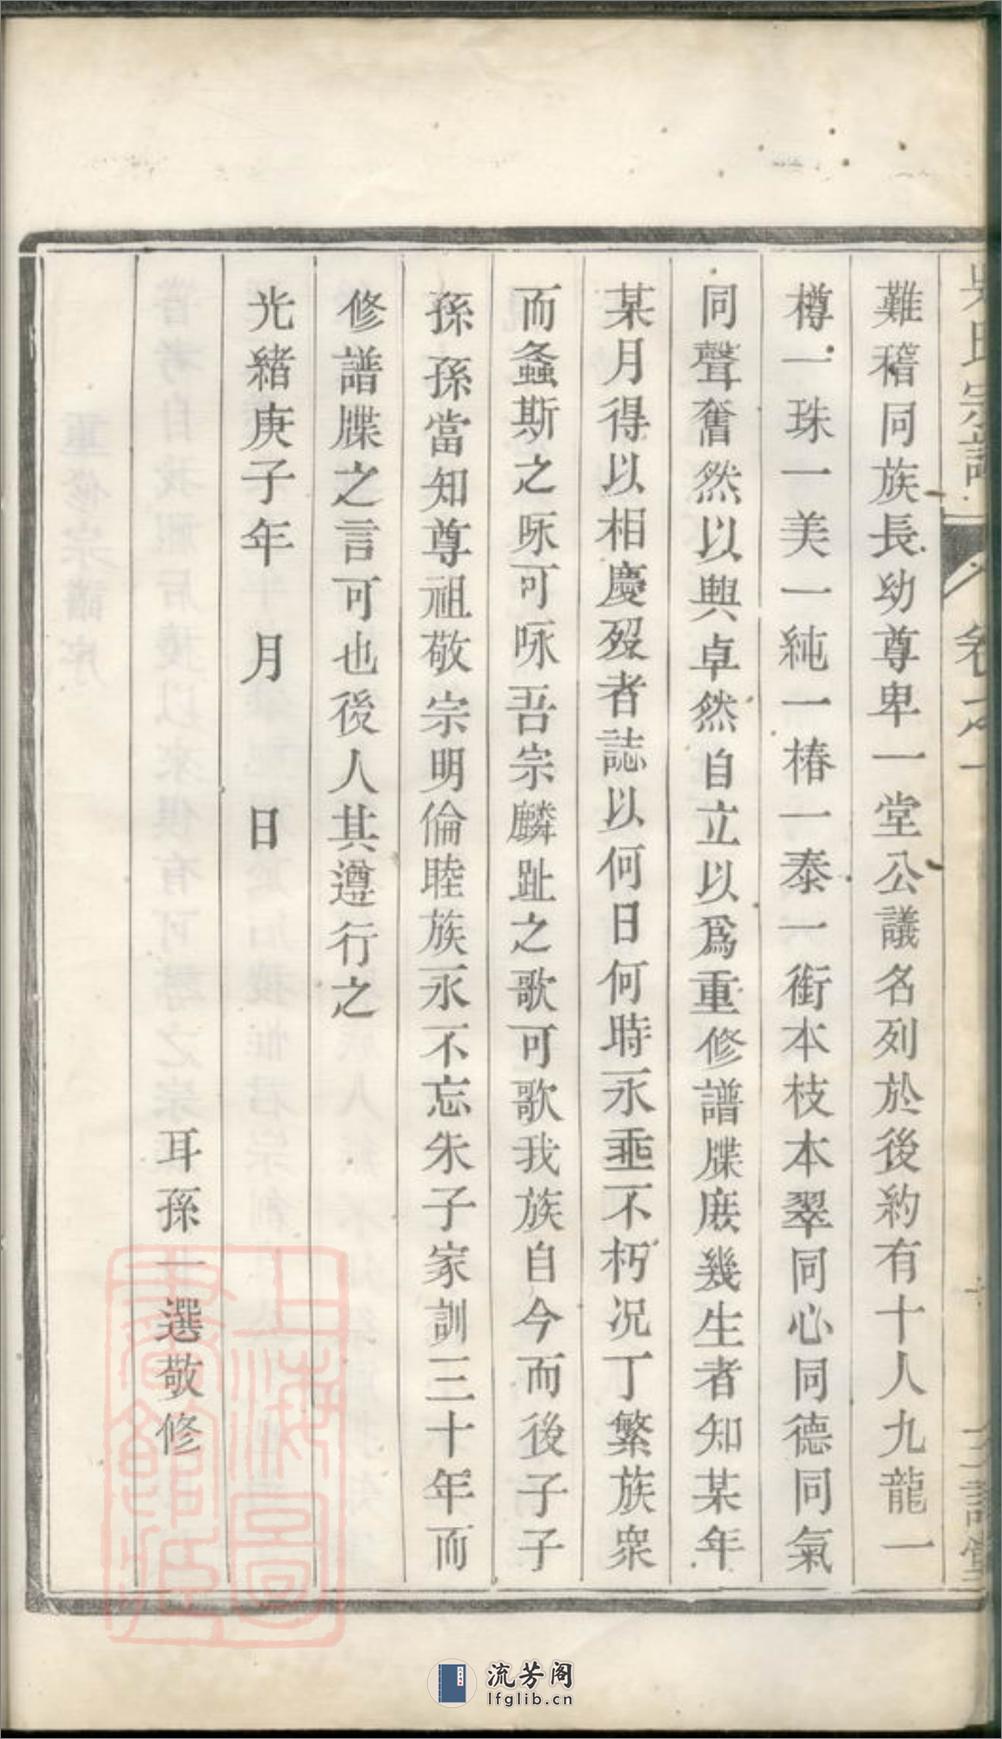 吳氏宗譜 卷之一
難稽同族長幼尊卑一堂公議名列於後約有十人九龍一
樽一珠一美一純一椿一泰一銜本枝本翠同心同德同氣
同聲奮然以興卓然自立以爲重修譜牒庻幾生者知某年
某月得以相慶歿者誌以何日何時永垂不朽况丁繁族衆
而螽斯之咏可咏吾宗麟趾之歌可歌我族自今而後子子
孫孫當知尊祖敬宗明倫睦族永不忘朱子家訓三十年而
修譜牒之言可也後人其遵行之
光緒庚子年 月 日
耳孫一選敬修
上海圖書館藏
流芳阁
lfglib.cn